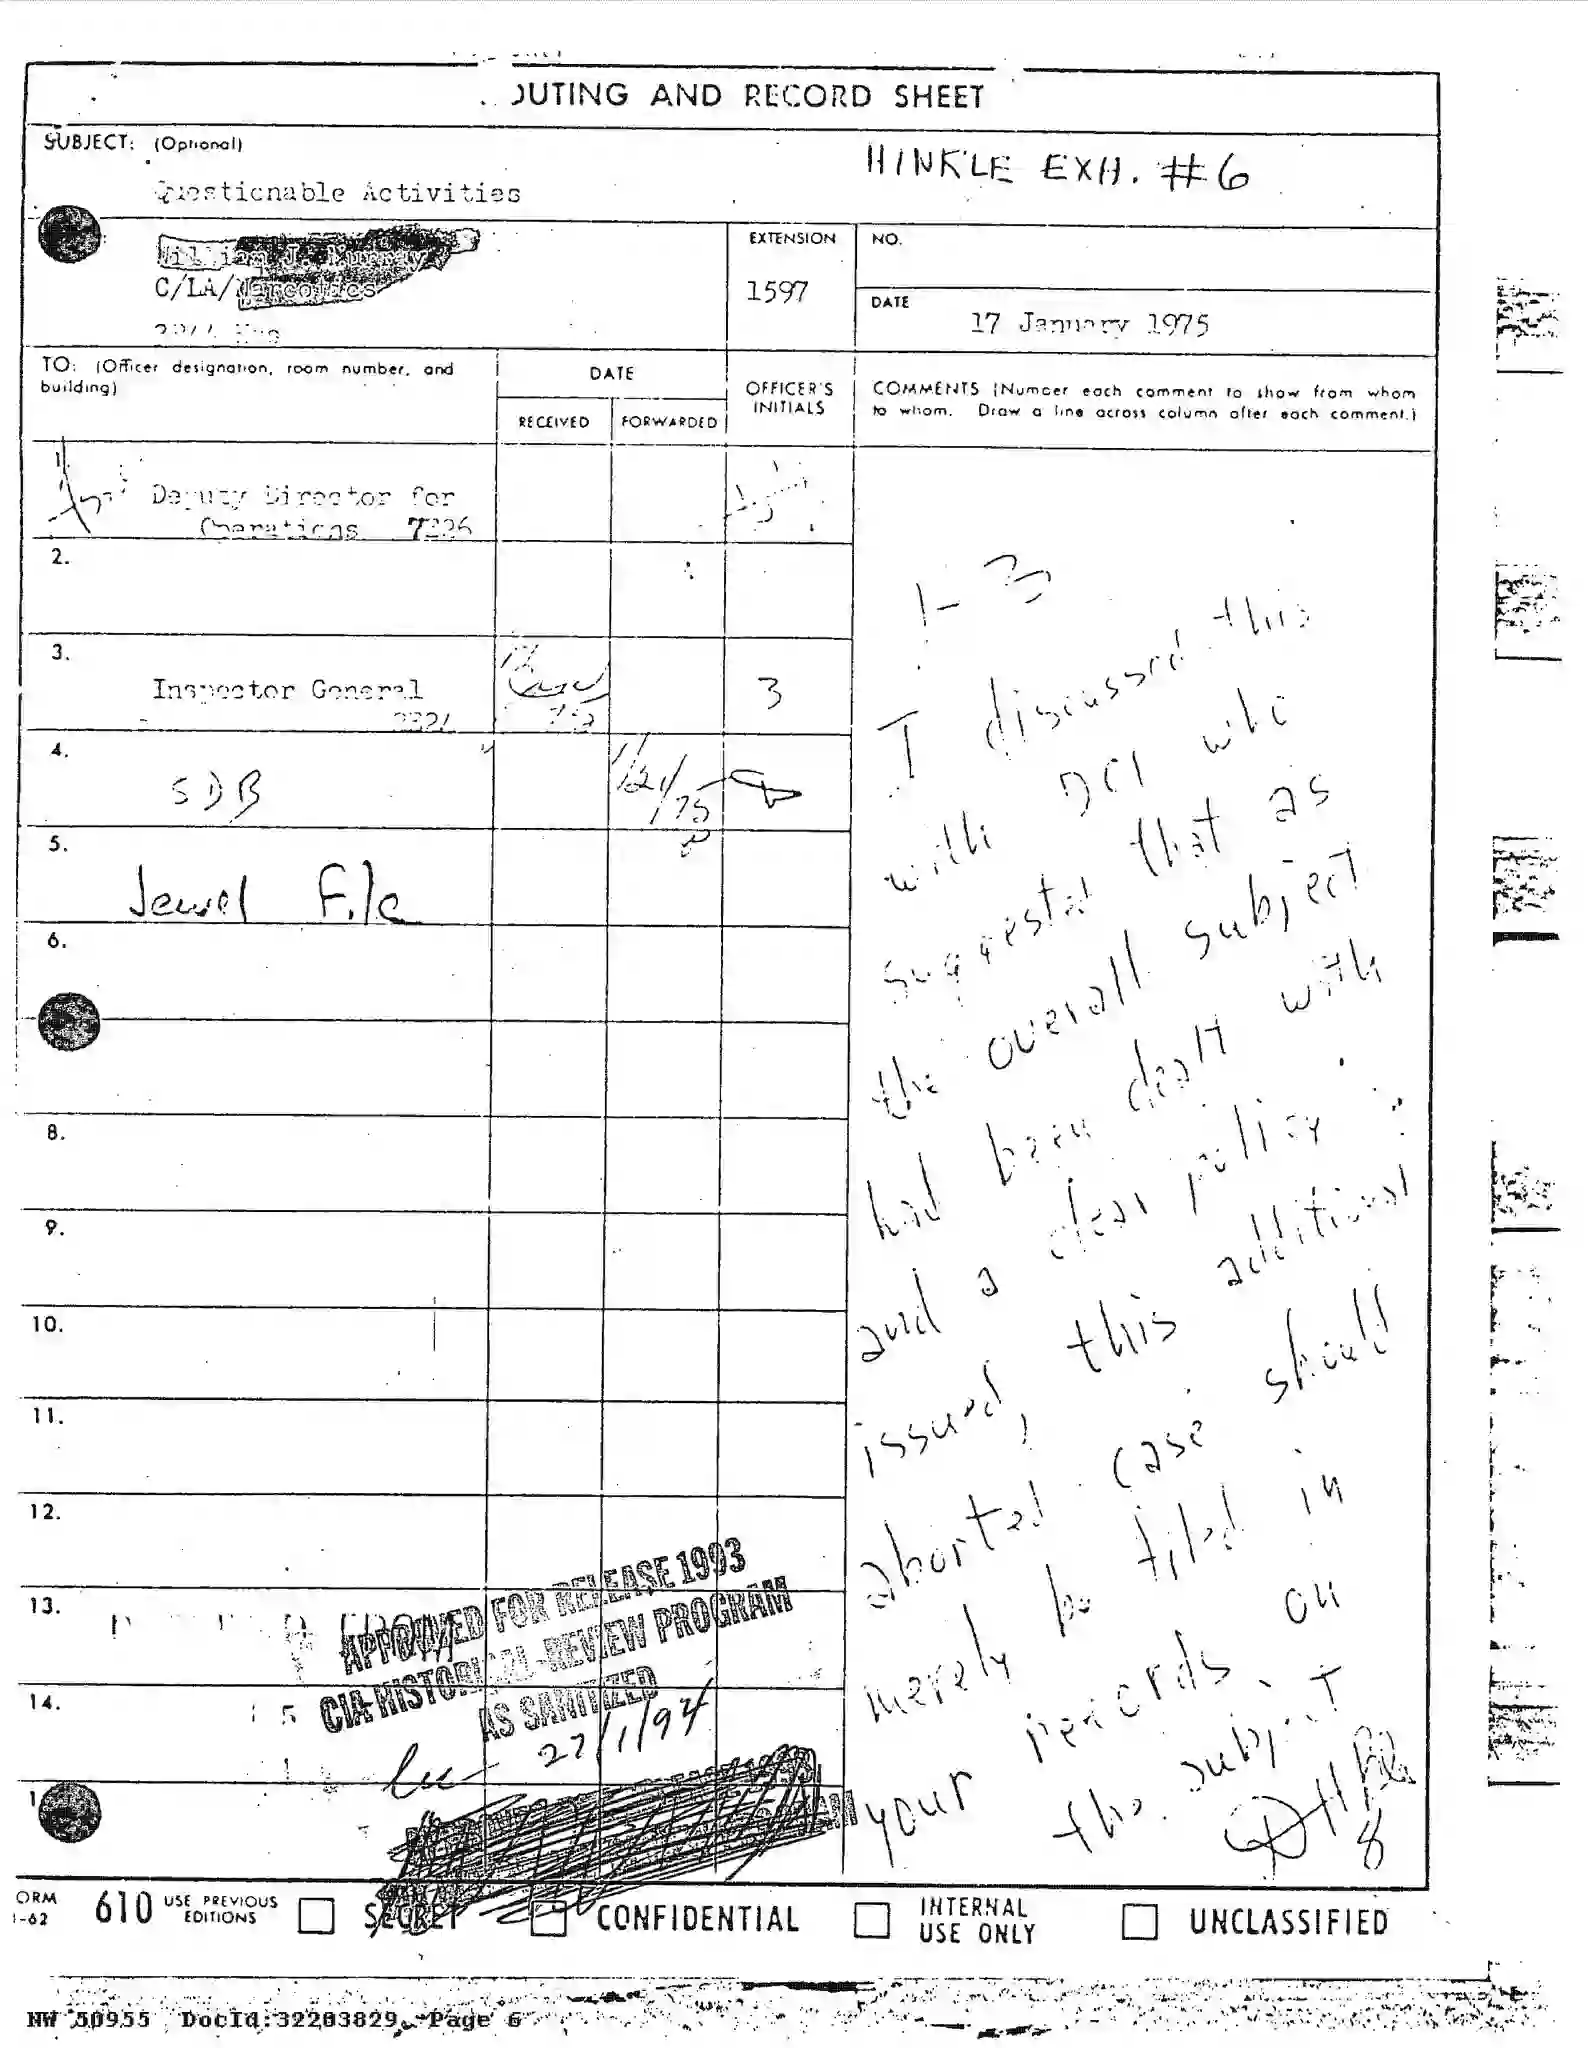 OUTING AND RECORD SHEET
SUBJECT: (Optional)
HINKLE EXH. #6
Questionable Activities
William J. Murray
C/LA/Narcotics
EXTENSION
1597
NO.
DATE
17 January 1975
TO: (Officer designation, room number, and
building)
DATE
RECEIVED
FORWARDED
OFFICER'S
INITIALS
COMMENTS (Number each comment to show from whom
to whom. Draw a line across column after each comment.)
Deputy Director for
Operations
2.
3.
Inspector General
3
4.
SDB
1/21/75
5.
Jewel File
6.
8.
9.
10.
11.
12.
13.
14.
1-3
I discussed this
with DCI who
suggested that as
the overall subject
had been dealt with
and a clear policy
issued, this additional
aborted case should
merely be filed in
your records on
the subject.
8
APPROVED FOR RELEASE 1993
CIA HISTORICAL-REVIEW PROGRAM
AS SANITIZED
27/1/94
ORM
1-62
610
USE PREVIOUS
EDITIONS
SECRET
CONFIDENTIAL
INTERNAL
USE ONLY
UNCLASSIFIED
NW 50955 DocId:32203829 Page 6